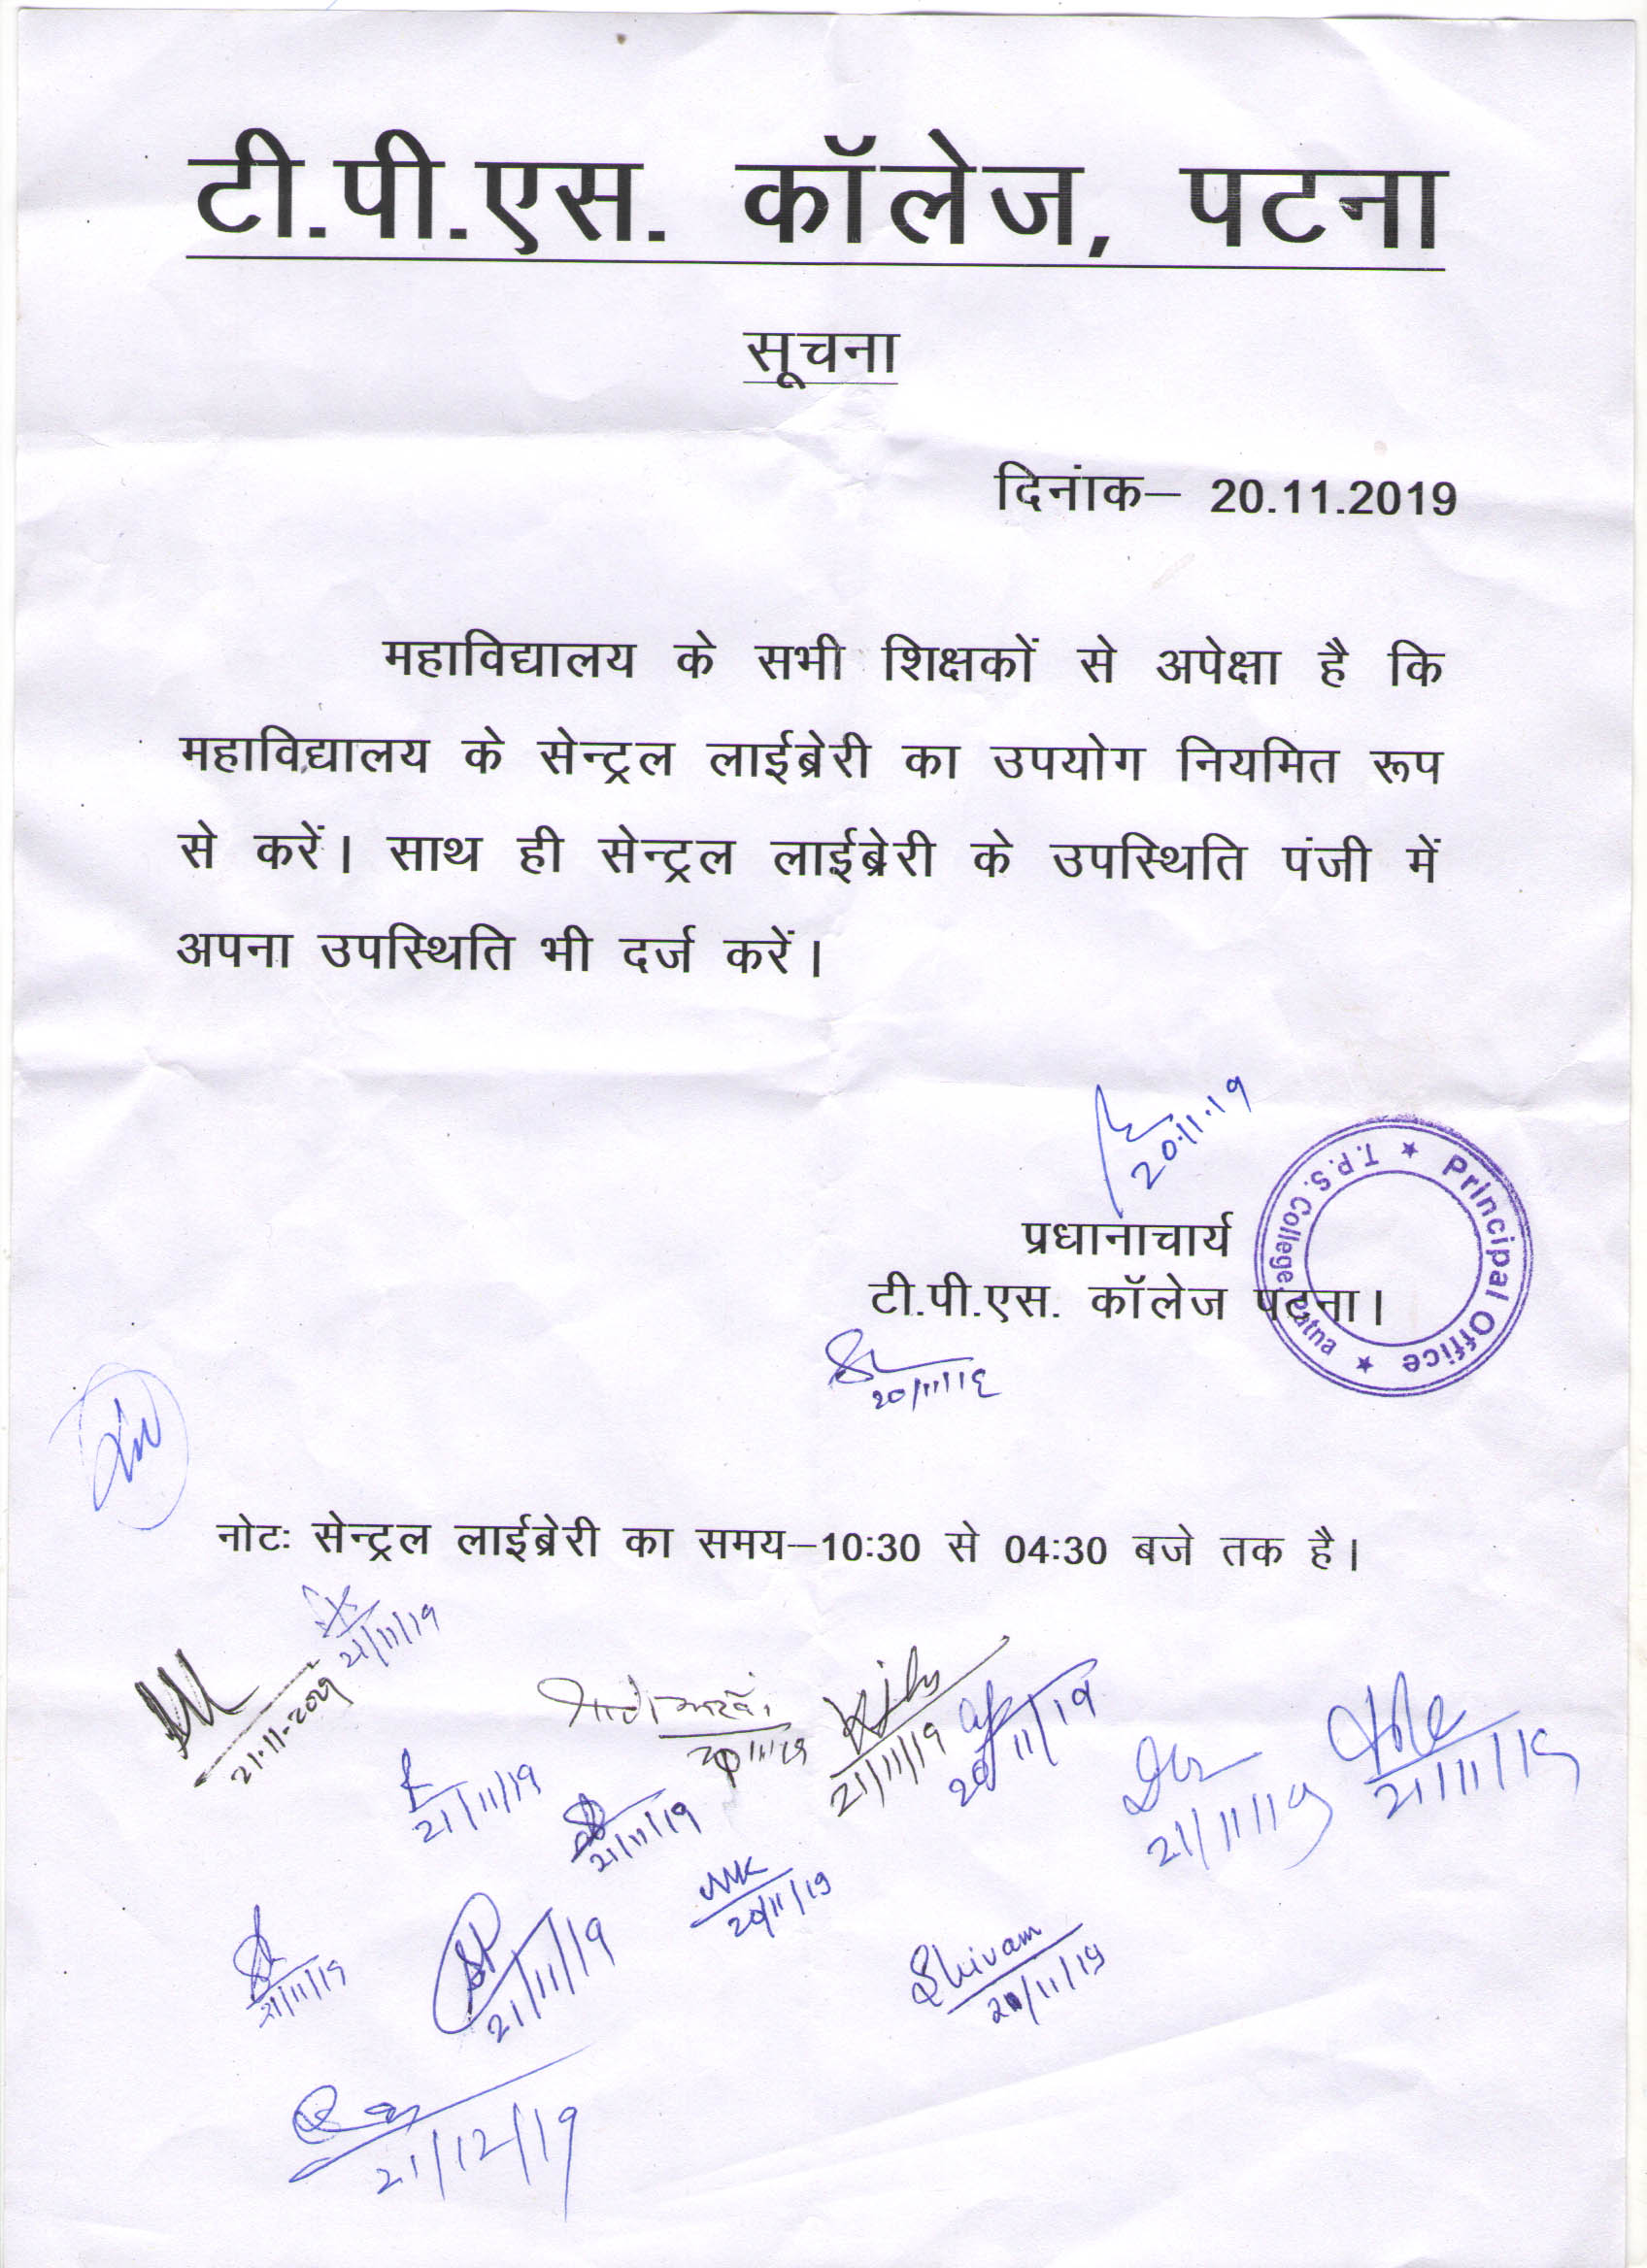 टी.पी.एस. कॉलेज, पटना
सूचना
दिनांक– 20.11.2019
महाविद्यालय के सभी शिक्षकों से अपेक्षा है कि
महाविद्यालय के सेन्ट्रल लाईब्रेरी का उपयोग नियमित रूप
से करें। साथ ही सेन्ट्रल लाईब्रेरी के उपस्थिति पंजी में
अपना उपस्थिति भी दर्ज करें।
20.11.19
प्रधानाचार्य
टी.पी.एस. कॉलेज पटना।
Principal Office
T.P.S. College, Patna
20/11/19
नोटः सेन्ट्रल लाईब्रेरी का समय–10:30 से 04:30 बजे तक है।
21/11/19
21.11.2019
21/11/19
20/11/19
21/11/19
21/11/19
21/11/19
21/11/19
21/11/19
21/11/19
21/11/19
Shivam
21/12/19